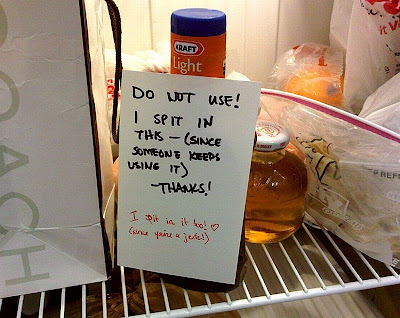 COACH
KRAFT
Light
DO NOT USE!
I SPIT IN
THIS – (SINCE
SOMEONE KEEPS
USING IT)
–THANKS!
I spit in it too! ♡
(since you're a jerk!)